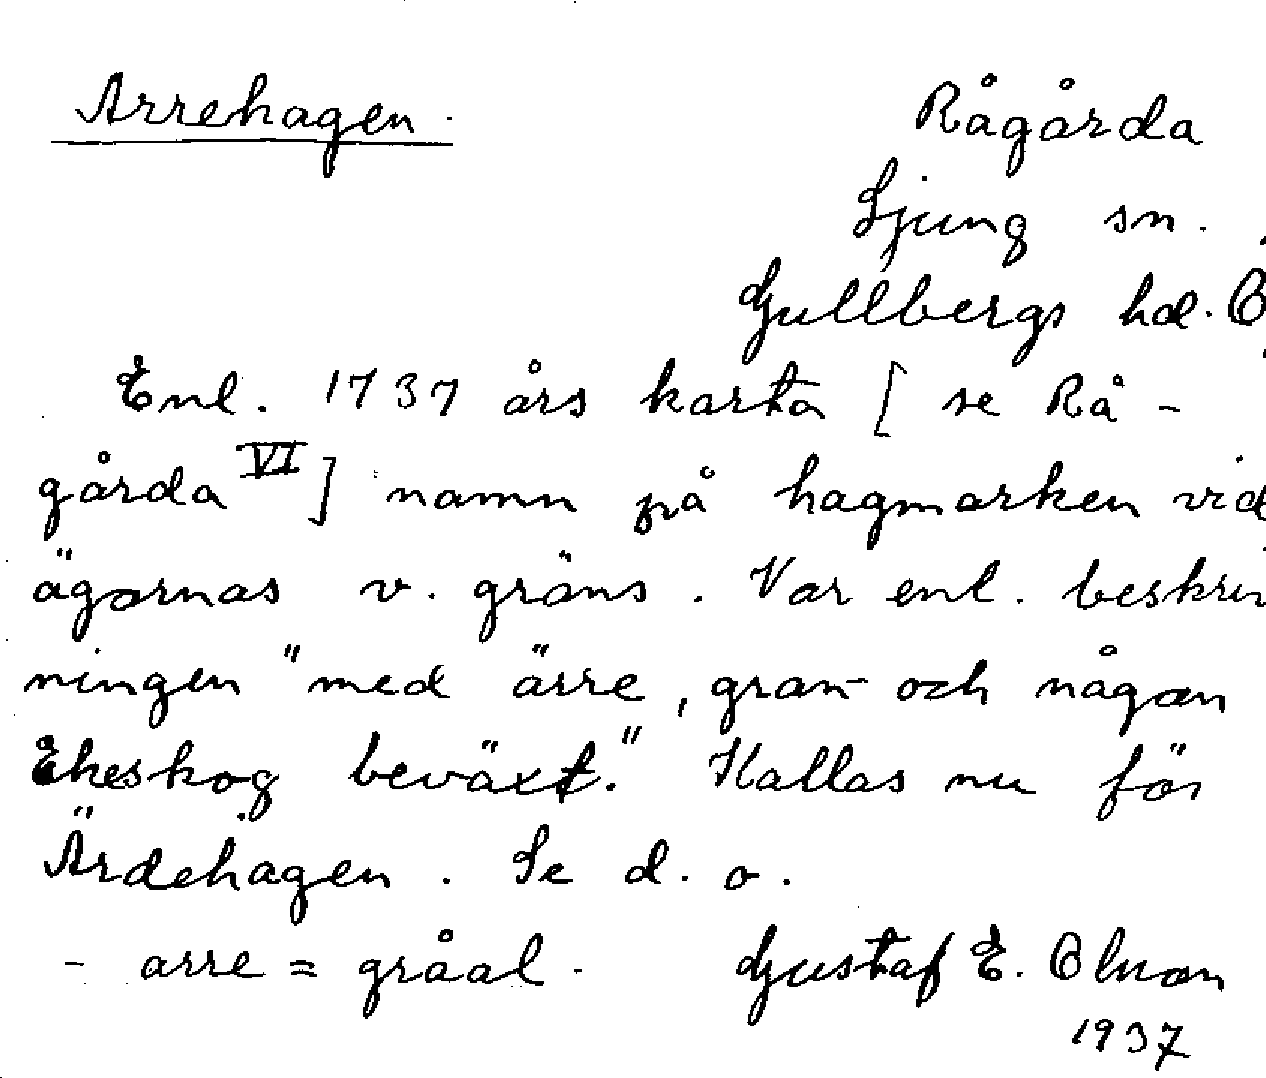 Arrehagen.
Rågårda
Ljung sn.
Gullbergs hd. Ö
Enl. 1737 års karta [ se Rå-
gårda VI ] namn på hagmarken vid
ägornas v. gräns. Var enl. beskriv
ningen "med ärre, gran- och någon
Ekeskog beväxt." Kallas nu för
Ärdehagen. Se d. o.
- arre = gråal. Gustaf E. Olson
1937